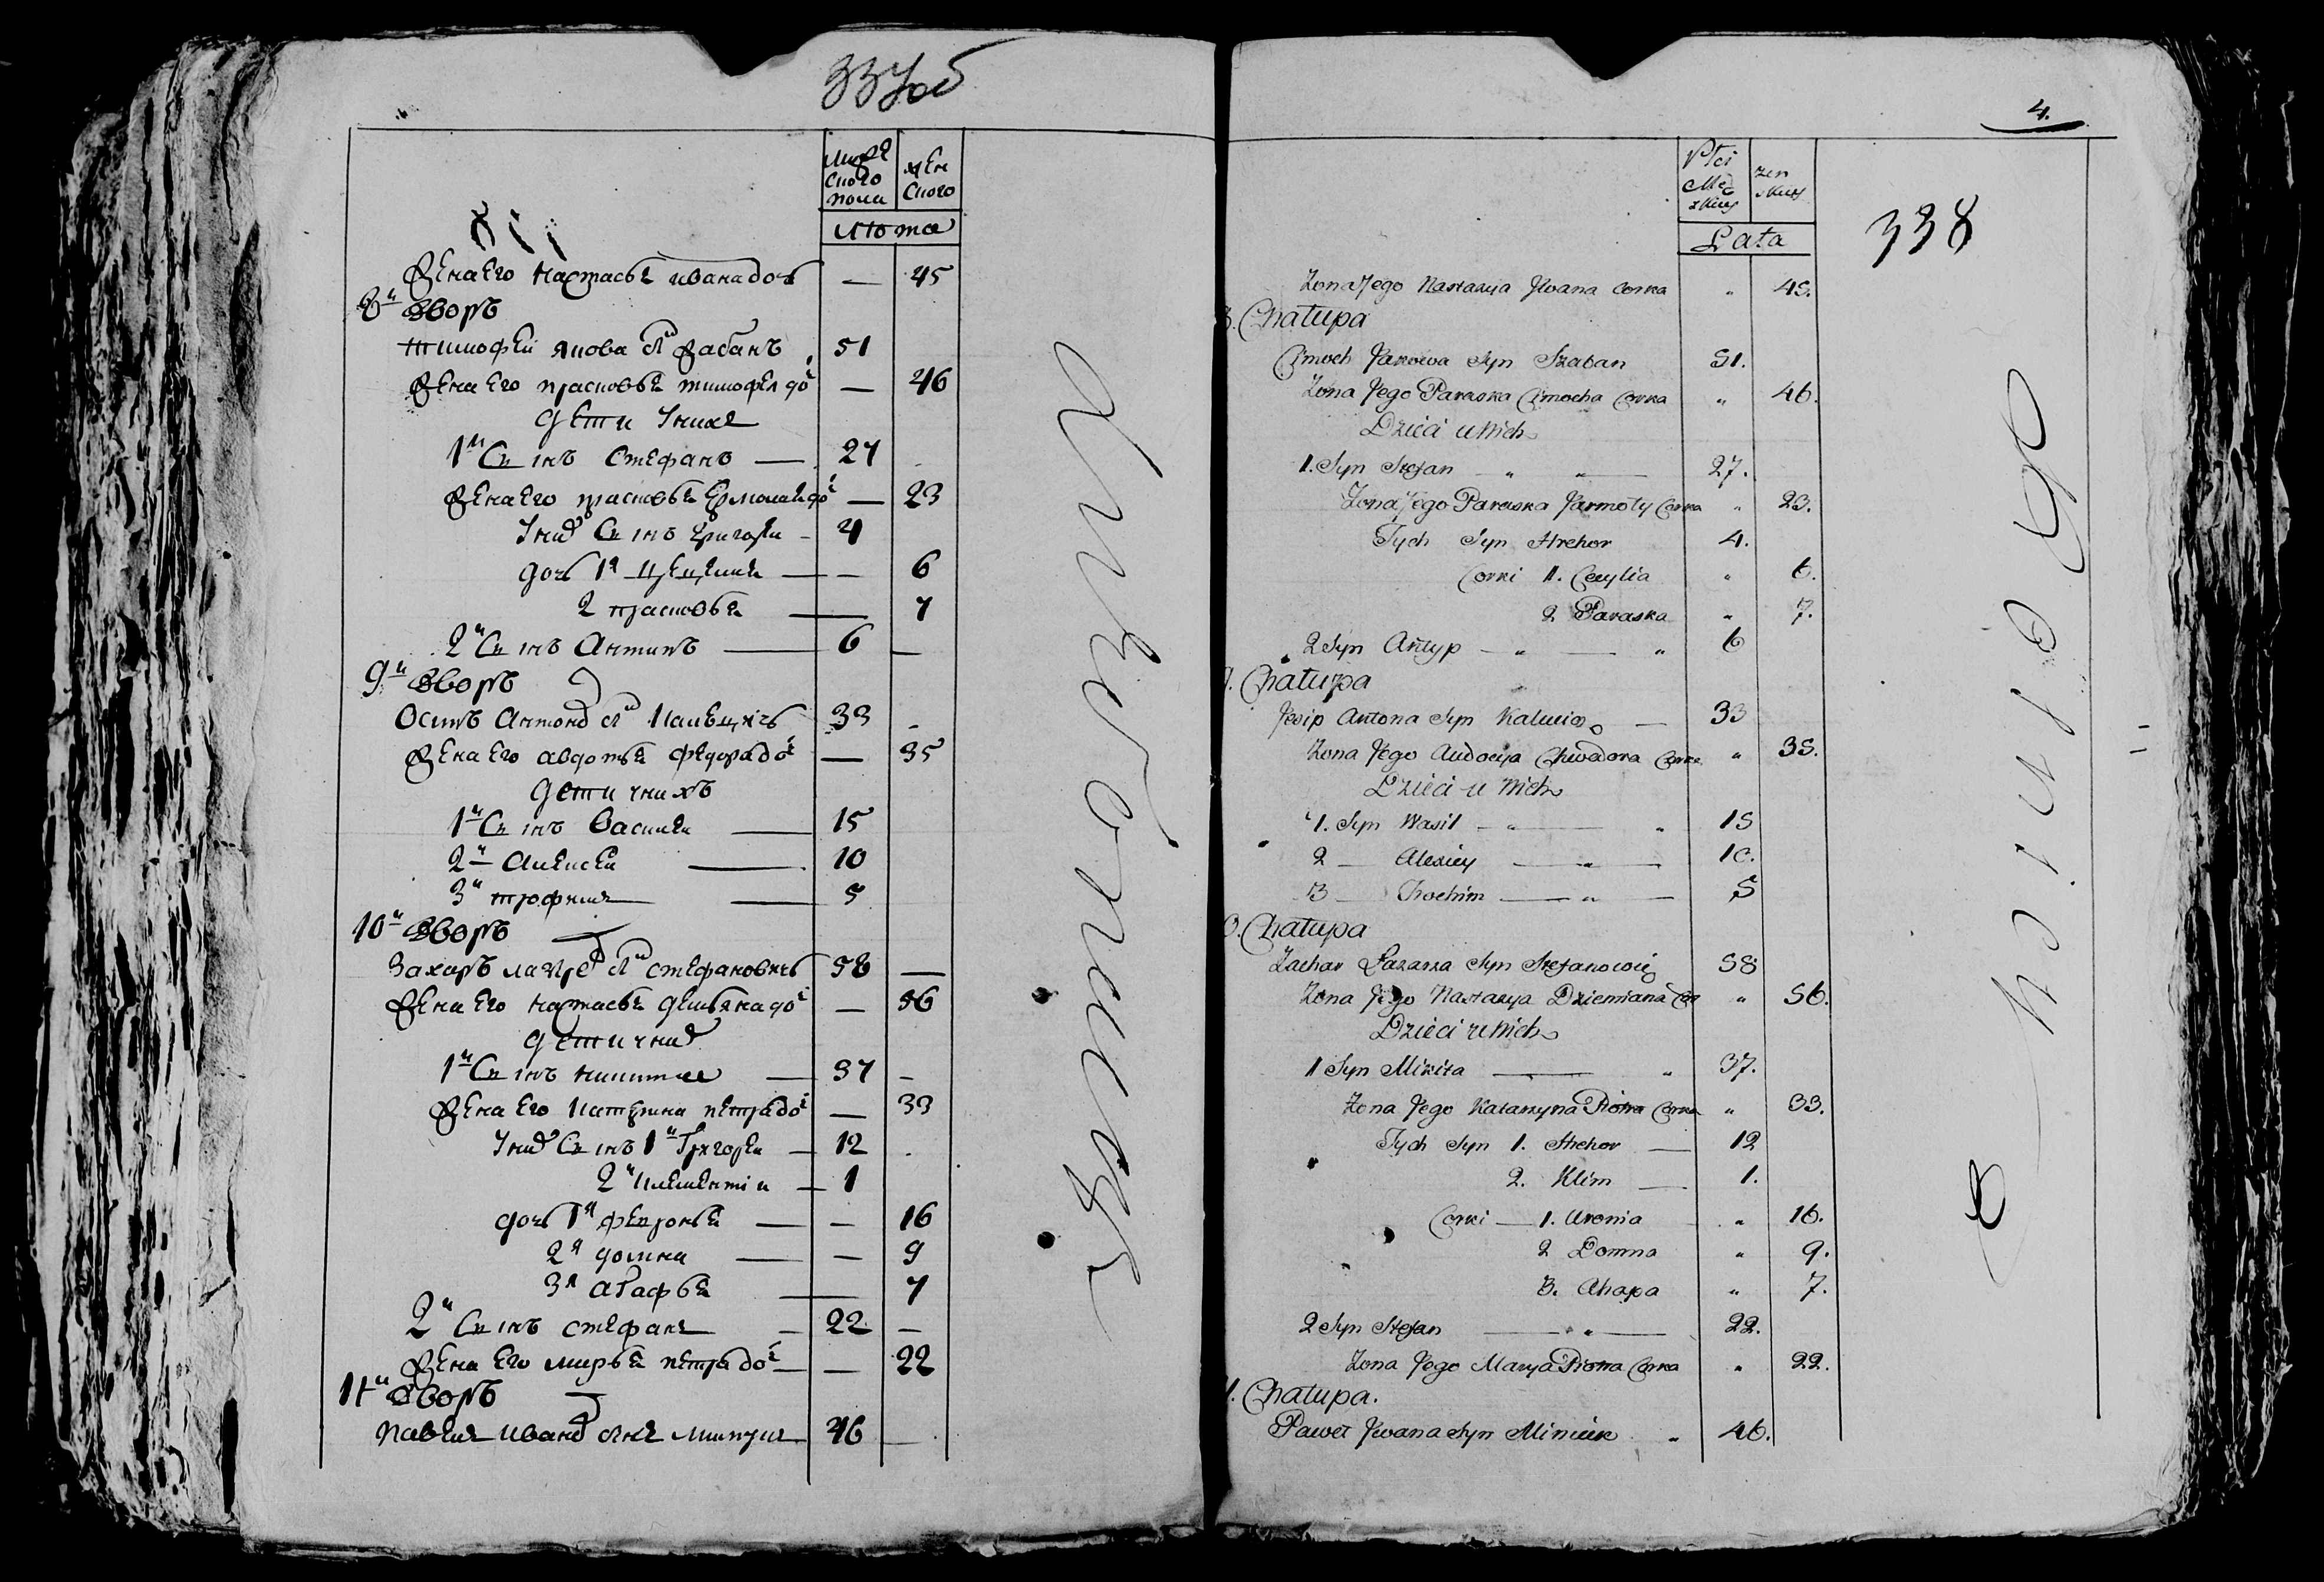 337об
мужеского пола
женского
лѣта
жена его настасья ивана дочь 45
8й дворъ
тимофей якова снъ жабанъ 51
жена его прасковья тимофея до 46
дети у них
1й Сынъ Стефанъ — 27
жена его прасковья ермолая до — 23
у них Сынъ григорей — 4
дочь 1я цецылия — 6
2 прасковья — 7
2й Сынъ Антипъ — 6 —
9й дворъ
Осипъ Антона снъ 33
жена его авдотья федора до — 35
дети у нихъ
1й Сынъ Василей — 15
2й Алексей — 10
3й трофим — 5
10й дворъ
Захаръ снъ стефановичъ 58 —
жена его настасья демьяна до — 56
дети у них
1й Сынъ никита — 37 —
жена его катерина петра до — 33
у них Сынъ 1й Григорей — 12
2й клементiи — 1
дочь 1я — — 16
2я домна — — 9
3я агафья — 7
2й Сынъ стефан — 22 —
жена его марья петра до — — 22
11й дворъ
павел ивана снъ 46 —
4.
338
Płci Męzkiey
żenskiey
Lata
Żona Jego Nastazya Jwana Corka " 45.
8. Chałupa
Cimoch Jakowa Syn Szaban 51.
Żona Jego Paraska Cimocha Corka " 46.
Dzieci u Nich
1. Syn Stefan — " — " — 27.
Żona Jego Paraska Jarmoły Corka " 23.
Tych Syn Hrehor 4.
Corki 1. Cecylia " 6.
2 Paraska " 7.
2 Syn Antyp — " — " 6
9. Chałupa
Josip Antona Syn — 33
Żona Jego Audocya Chwadora Corka " 35.
Dzieci u Nich
1. Syn Wasil — " — " 15
2 — Alexiey — " — 10.
3 — Trochim — " — 5
10. Chałupa
Zachar Łazarza Syn Stefanowicz 58
Żona Jego Nastazya Dziemiana Cor " 56.
Dzieci u Nich
1 Syn Mikita — " 37.
Żona Jego Katarzyna Piotra Corka " 33.
Tych Syn 1. Hrehor — 12
2. Klim — 1.
Corki — 1. " 16.
2 Domna " 9.
3. Ahapa " 7.
2 Syn Stefan — " — 22.
Żona Jego Marya Piotra Corka " 22.
11. Chałupa.
Paweł Jwana Syn " 46.